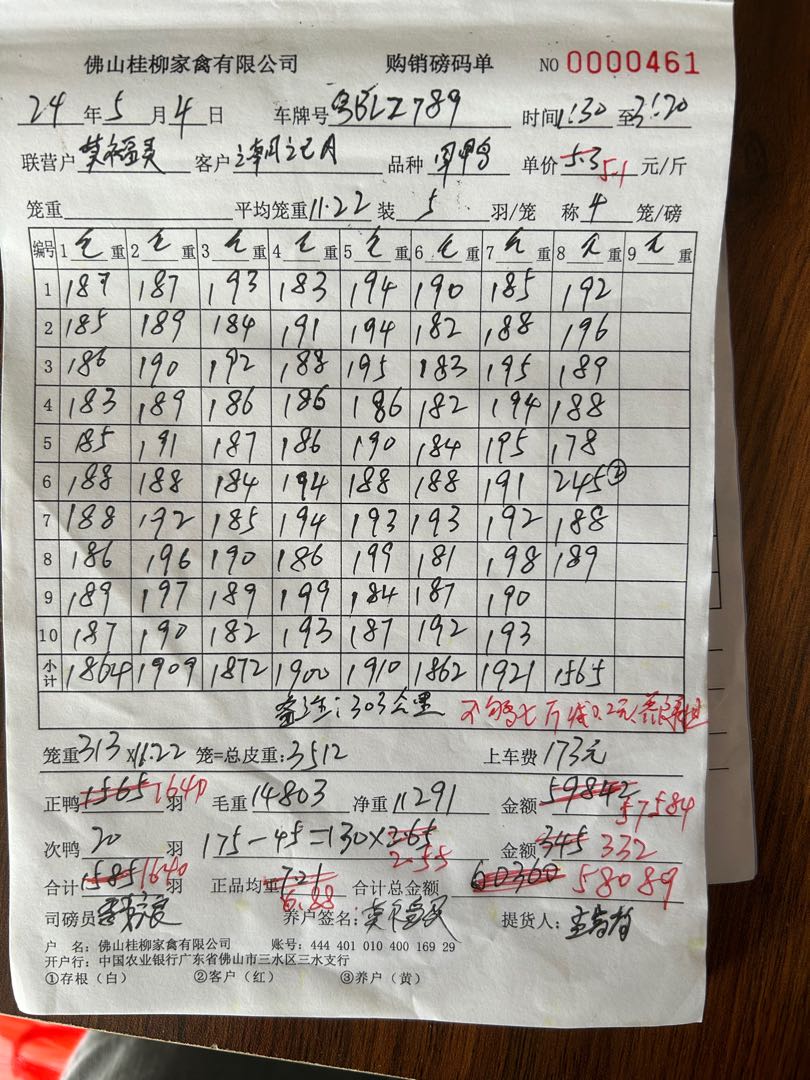 佛山桂柳家禽有限公司 购销磅码单 NO 0000461
24 年 5 月 4 日 车牌号 粤BLZ789 时间 1:30 至 3:20
联营户 客户 品种 单价 5.3 5.1 元/斤
笼重 平均笼重 11.22 装 5 羽/笼 称 4 笼/磅
编号 1 毛 重 2 毛 重 3 毛 重 4 毛 重 5 毛 重 6 毛 重 7 毛 重 8 毛 重 9 毛 重
1 187 187 193 183 194 190 185 192
2 185 189 184 191 194 182 188 196
3 186 190 192 188 195 183 195 189
4 183 189 186 186 186 182 194 188
5 185 191 187 186 190 184 195 178
6 188 188 184 194 188 188 191 245
7 188 192 185 194 193 193 192 188
8 186 196 190 186 199 181 198 189
9 189 197 189 199 184 187 190
10 187 190 182 193 187 192 193
小计 1864 1909 1872 1900 1910 1862 1921 1565
备注:303公里 不够七斤减0.2元
笼重 313×11.22 笼=总皮重:3512 上车费 173元
正鸭 1565 1640 羽 毛重 14803 净重 11291 金额 59842 57584
次鸭 20 羽 175-45=130×265 2.55 金额 345 332
合计 1585 1640 羽 正品均重 7.21 6.88 合计总金额 60360 58089
司磅员 养户签名: 提货人:
户 名:佛山桂柳家禽有限公司 账号:444 401 010 400 169 29
开户行:中国农业银行广东省佛山市三水区三水支行
①存根(白) ②客户(红) ③养户(黄)